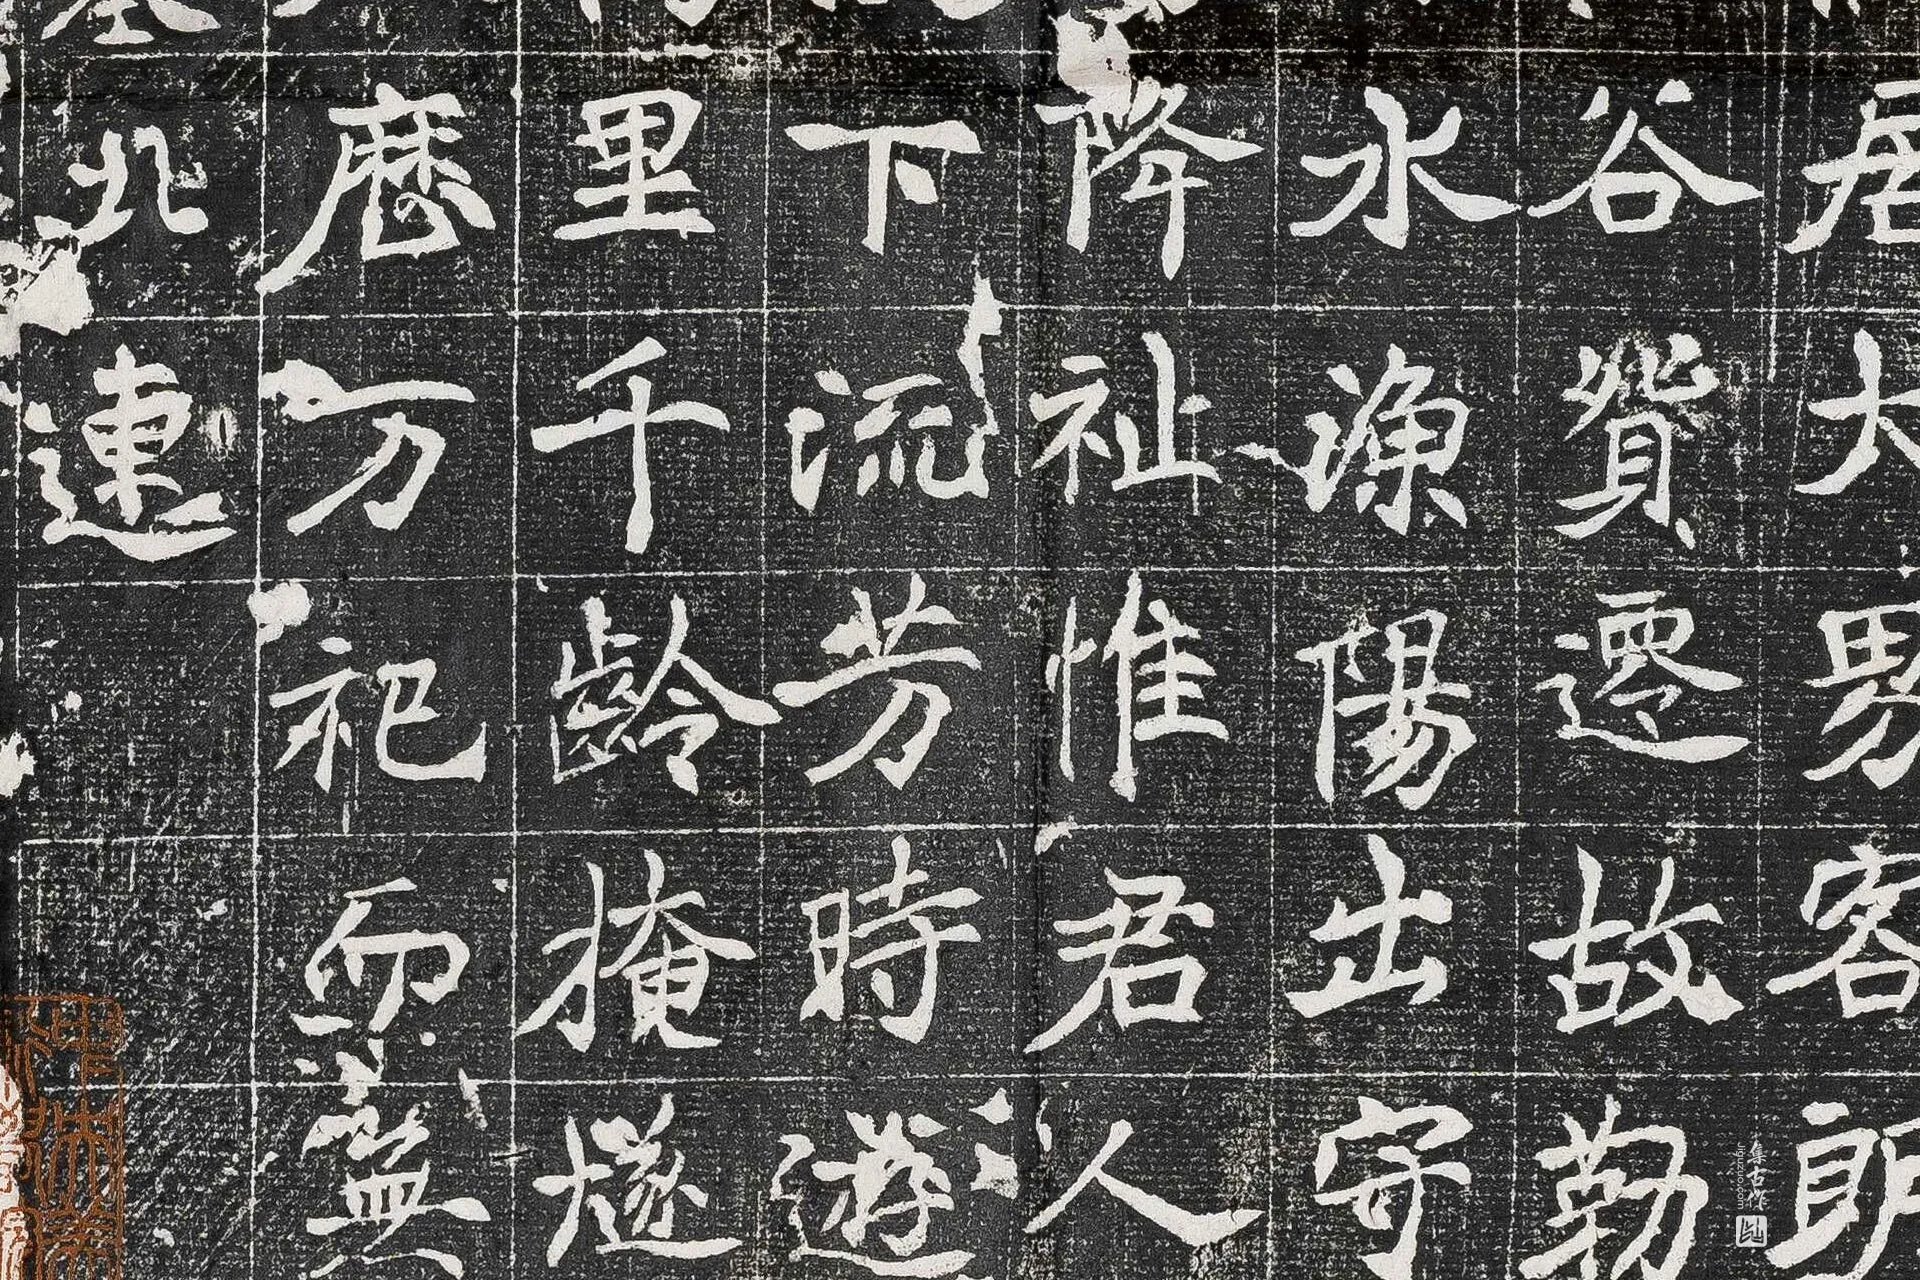 居大男客郎
谷貲遷故勒
水漁陽出守
降祉惟君人
下流芳時遊
里千齡掩燧
曆万祀而無
北連
集古作